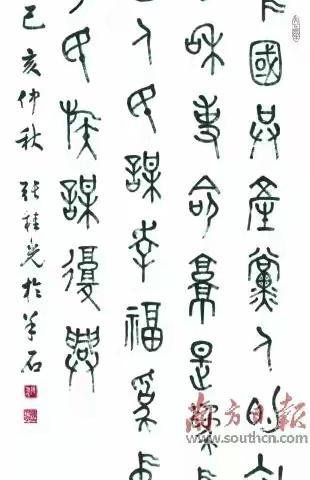 國共產黨人的
和使命就是為
人民謀幸福為
民族謀復興
己亥仲秋 張桂光於羊石
南方日報
www.southcn.com